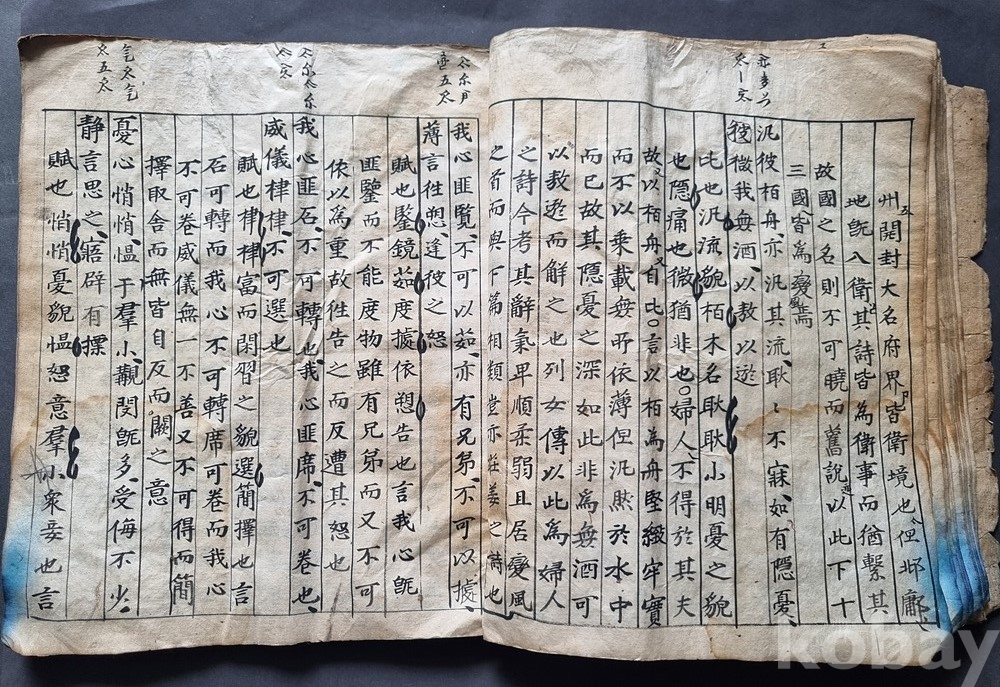 州開封大名府界皆衛境也但邶鄘
地旣入衛其詩皆為衛事而猶繫其
故國之名則不可曉而舊說以此下十
三國皆為變風焉
汎彼栢舟亦汎其流耿〻不寐如有隱憂
微我無酒以敖以遊
比也汎流貌栢木名耿耿小明憂之貌
也隱痛也微猶非也○婦人不得於其夫
故以栢舟自比○言以栢為舟堅緻牢實
而不以乘載無所依薄但汎然於水中
而已故其隱憂之深如此非為無酒可
以敖遊而解之也列女傳以此為婦人
之詩今考其辭氣卑順柔弱且居變風
之首而與下篇相類豈亦莊姜之詩也
我心匪鑒不可以茹亦有兄弟不可以據
薄言徃愬逢彼之怒
賦也鑒鏡茹度據依愬告也言我心旣
匪鑒而不能度物雖有兄弟而又不可
依以為重故徃告之而反遭其怒也
我心匪石不可轉也我心匪席不可卷也
威儀棣棣不可選也
賦也棣棣富而閑習之貌選簡擇也言
石可轉而我心不可轉席可卷而我心
不可卷威儀無一不善又不可得而簡
擇取舍而無皆自反而闕之意
憂心悄悄慍于羣小覯閔旣多受侮不少
靜言思之寤辟有摽
賦也悄悄憂貌慍怒意羣小衆妾也言
kobay